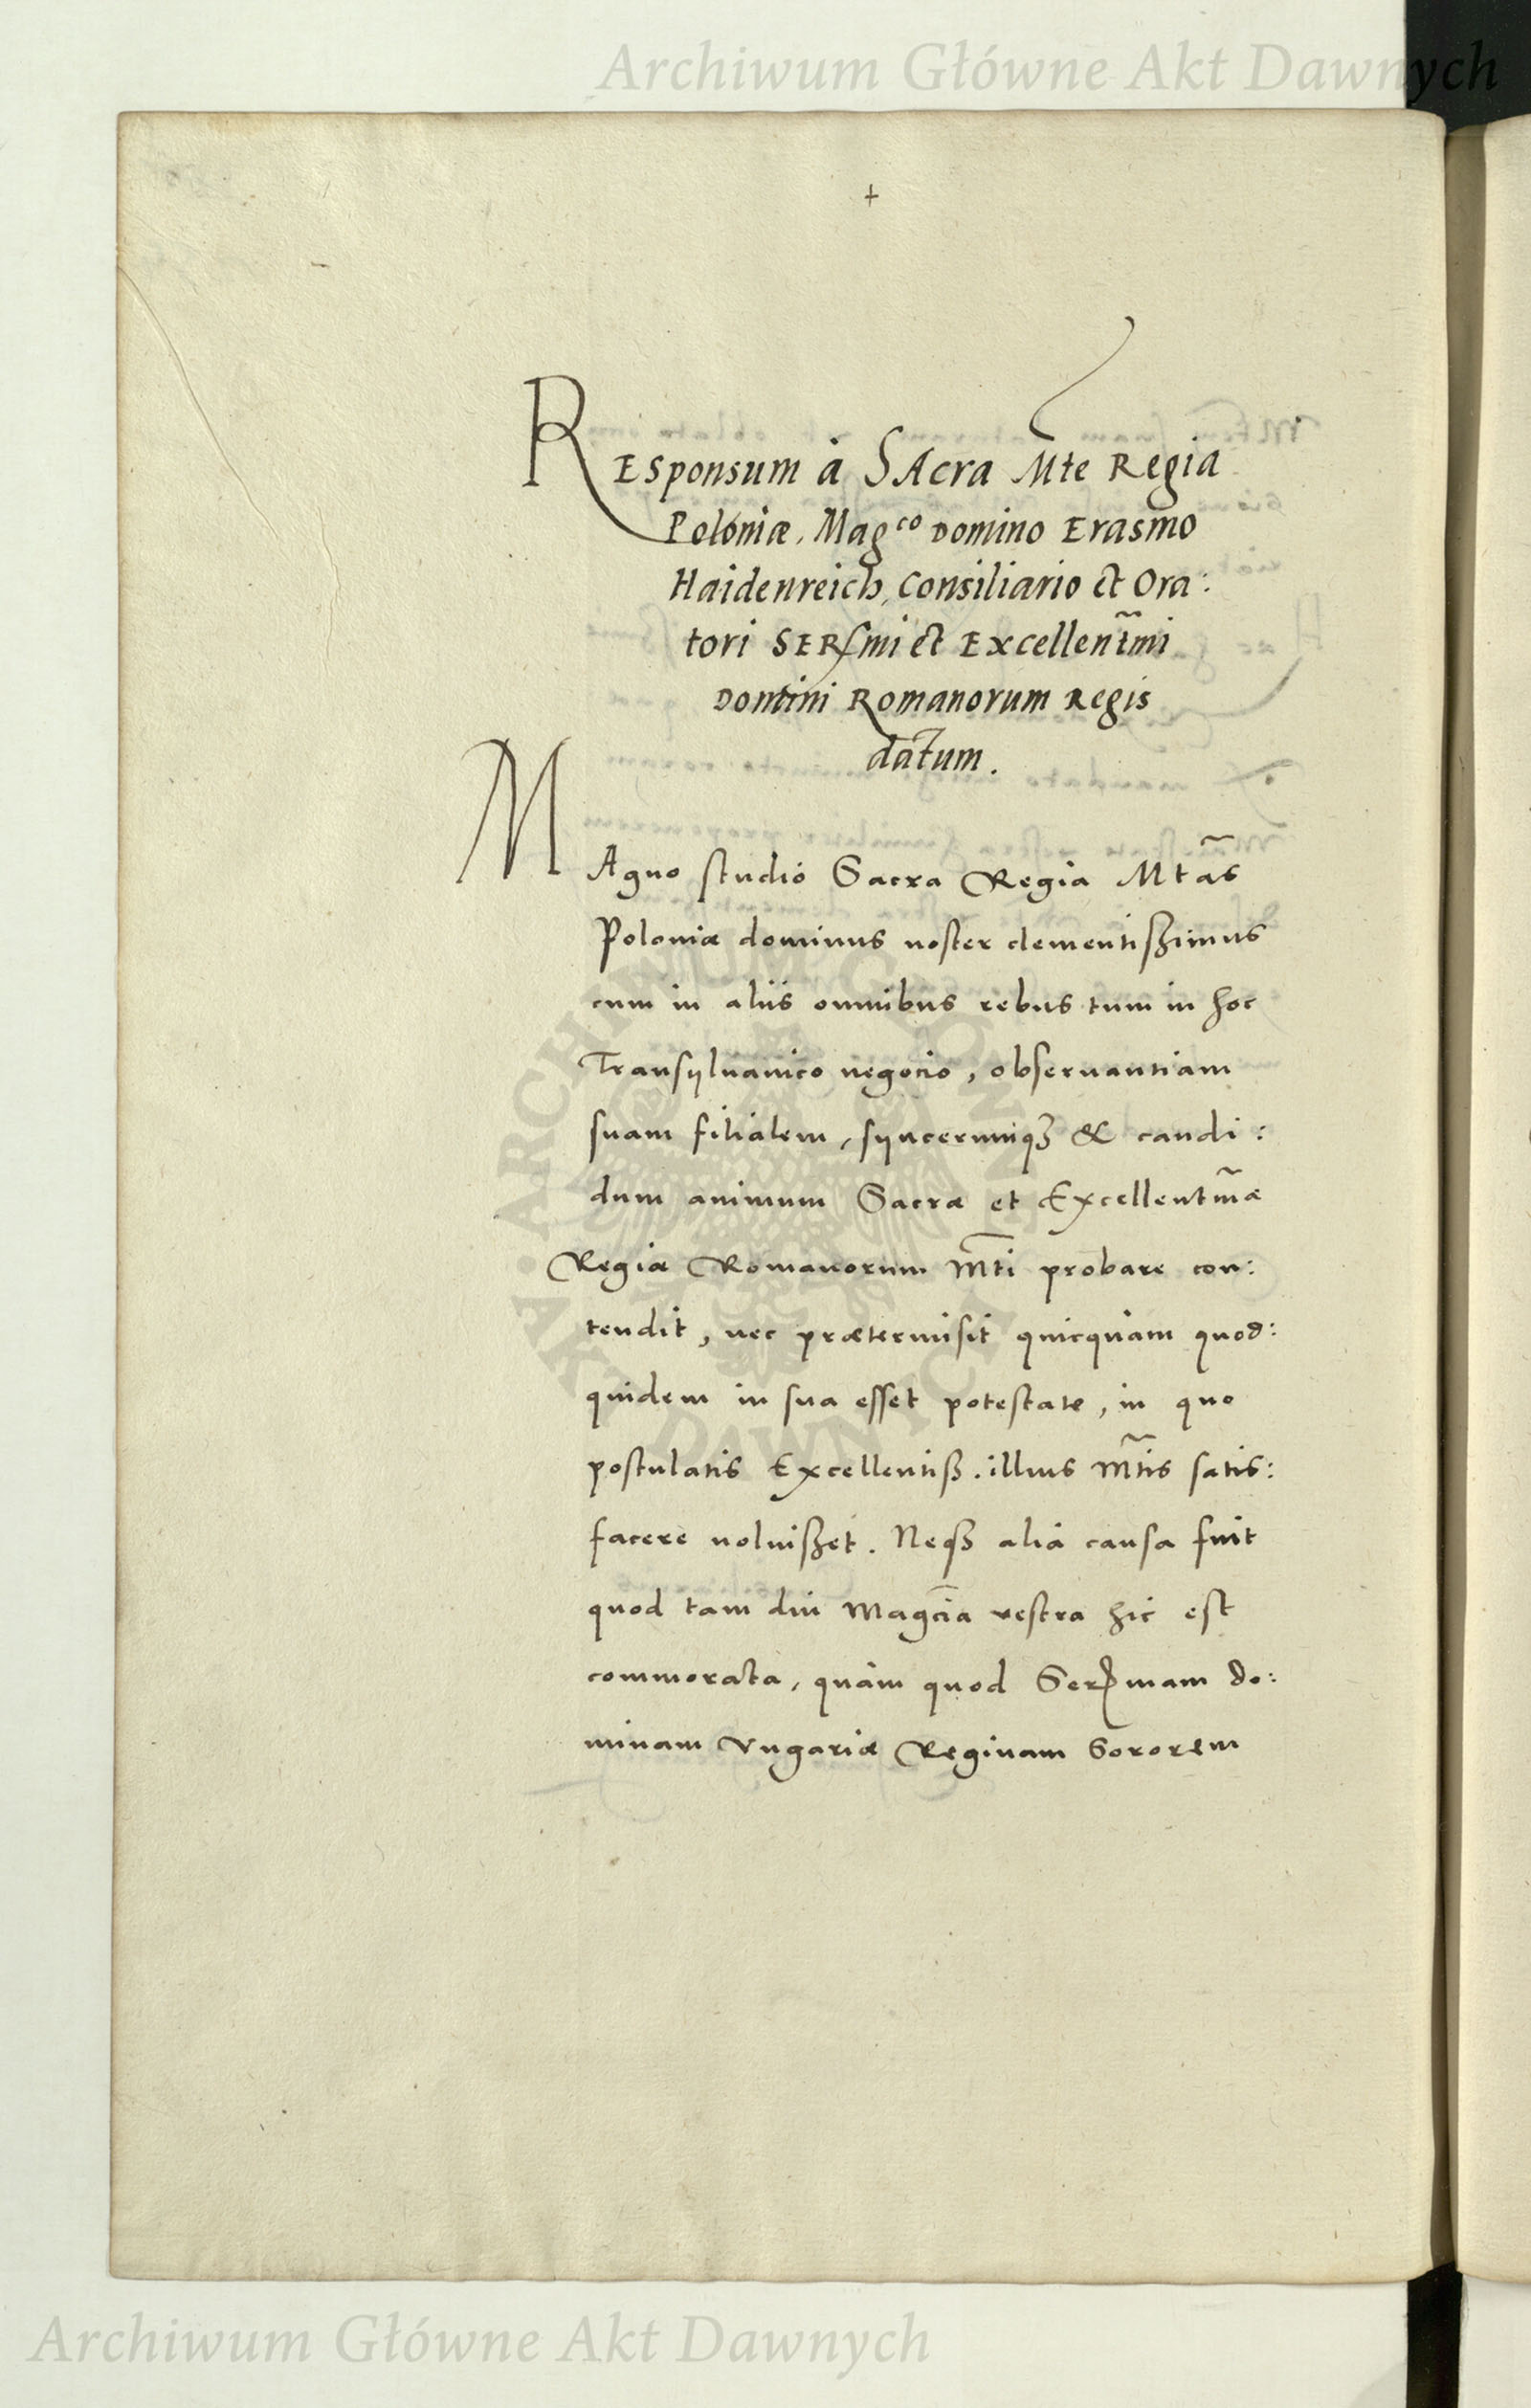 Archiwum Główne Akt Dawnych
+
RESponsum à SAcra Mte Regia
Poloniæ, Mag^co Domino Erasmo
Haidenreich, Consiliario et Ora:
tori SERſmi et Excellent̃mi
Domini Romanorum Regis
datum.
MAgno studio Sacra Regia Mtãs
Poloniæ dominus noster clementißimus
cum in aliis omnibus rebus tum in hoc
Transyluanico negocio, obseruantiam
suam filialem, syncerumqꝫ & candi:
dum animum Sacræ et Excellentm̃æ
Regiæ Romanorum Mt̃i probare con:
tendit, nec prætermisit quicquam quod:
quidem in sua esset potestate, in quo
postulatis Excellentiß. illius Mt̃is satis:
facere uoluißet. Neqꝫ alia causa fuit
quod tam diu Magc̃ia vestra hic est
commorata, quàm quod Serſmam do:
minam Vngariæ Reginam Sororem
ARCHIWUM GŁÓWNE
AKT DAWNYCH
Archiwum Główne Akt Dawnych